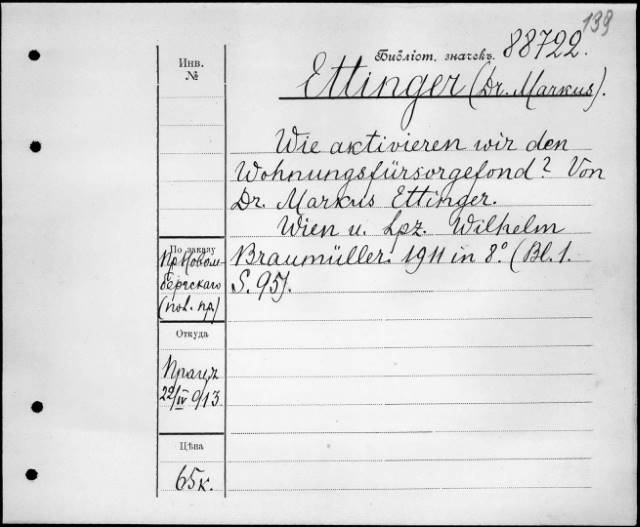 139
Библіот. значекъ 88722.
Ettinger (Dr. Markus).
Инв.
№
Wie aktivieren wir den
Wohnungsfürsorgefond? Von
Dr. Markus Ettinger.
Wien u. Lpz. Wilhelm
Braumüller. 1911 in 8° (Bl. 1.
S. 95).
По заказу
Пр. Новом-
бергскаго
(нов. пр)
Откуда
Працъ
22/IV 913
Цѣна
65к.